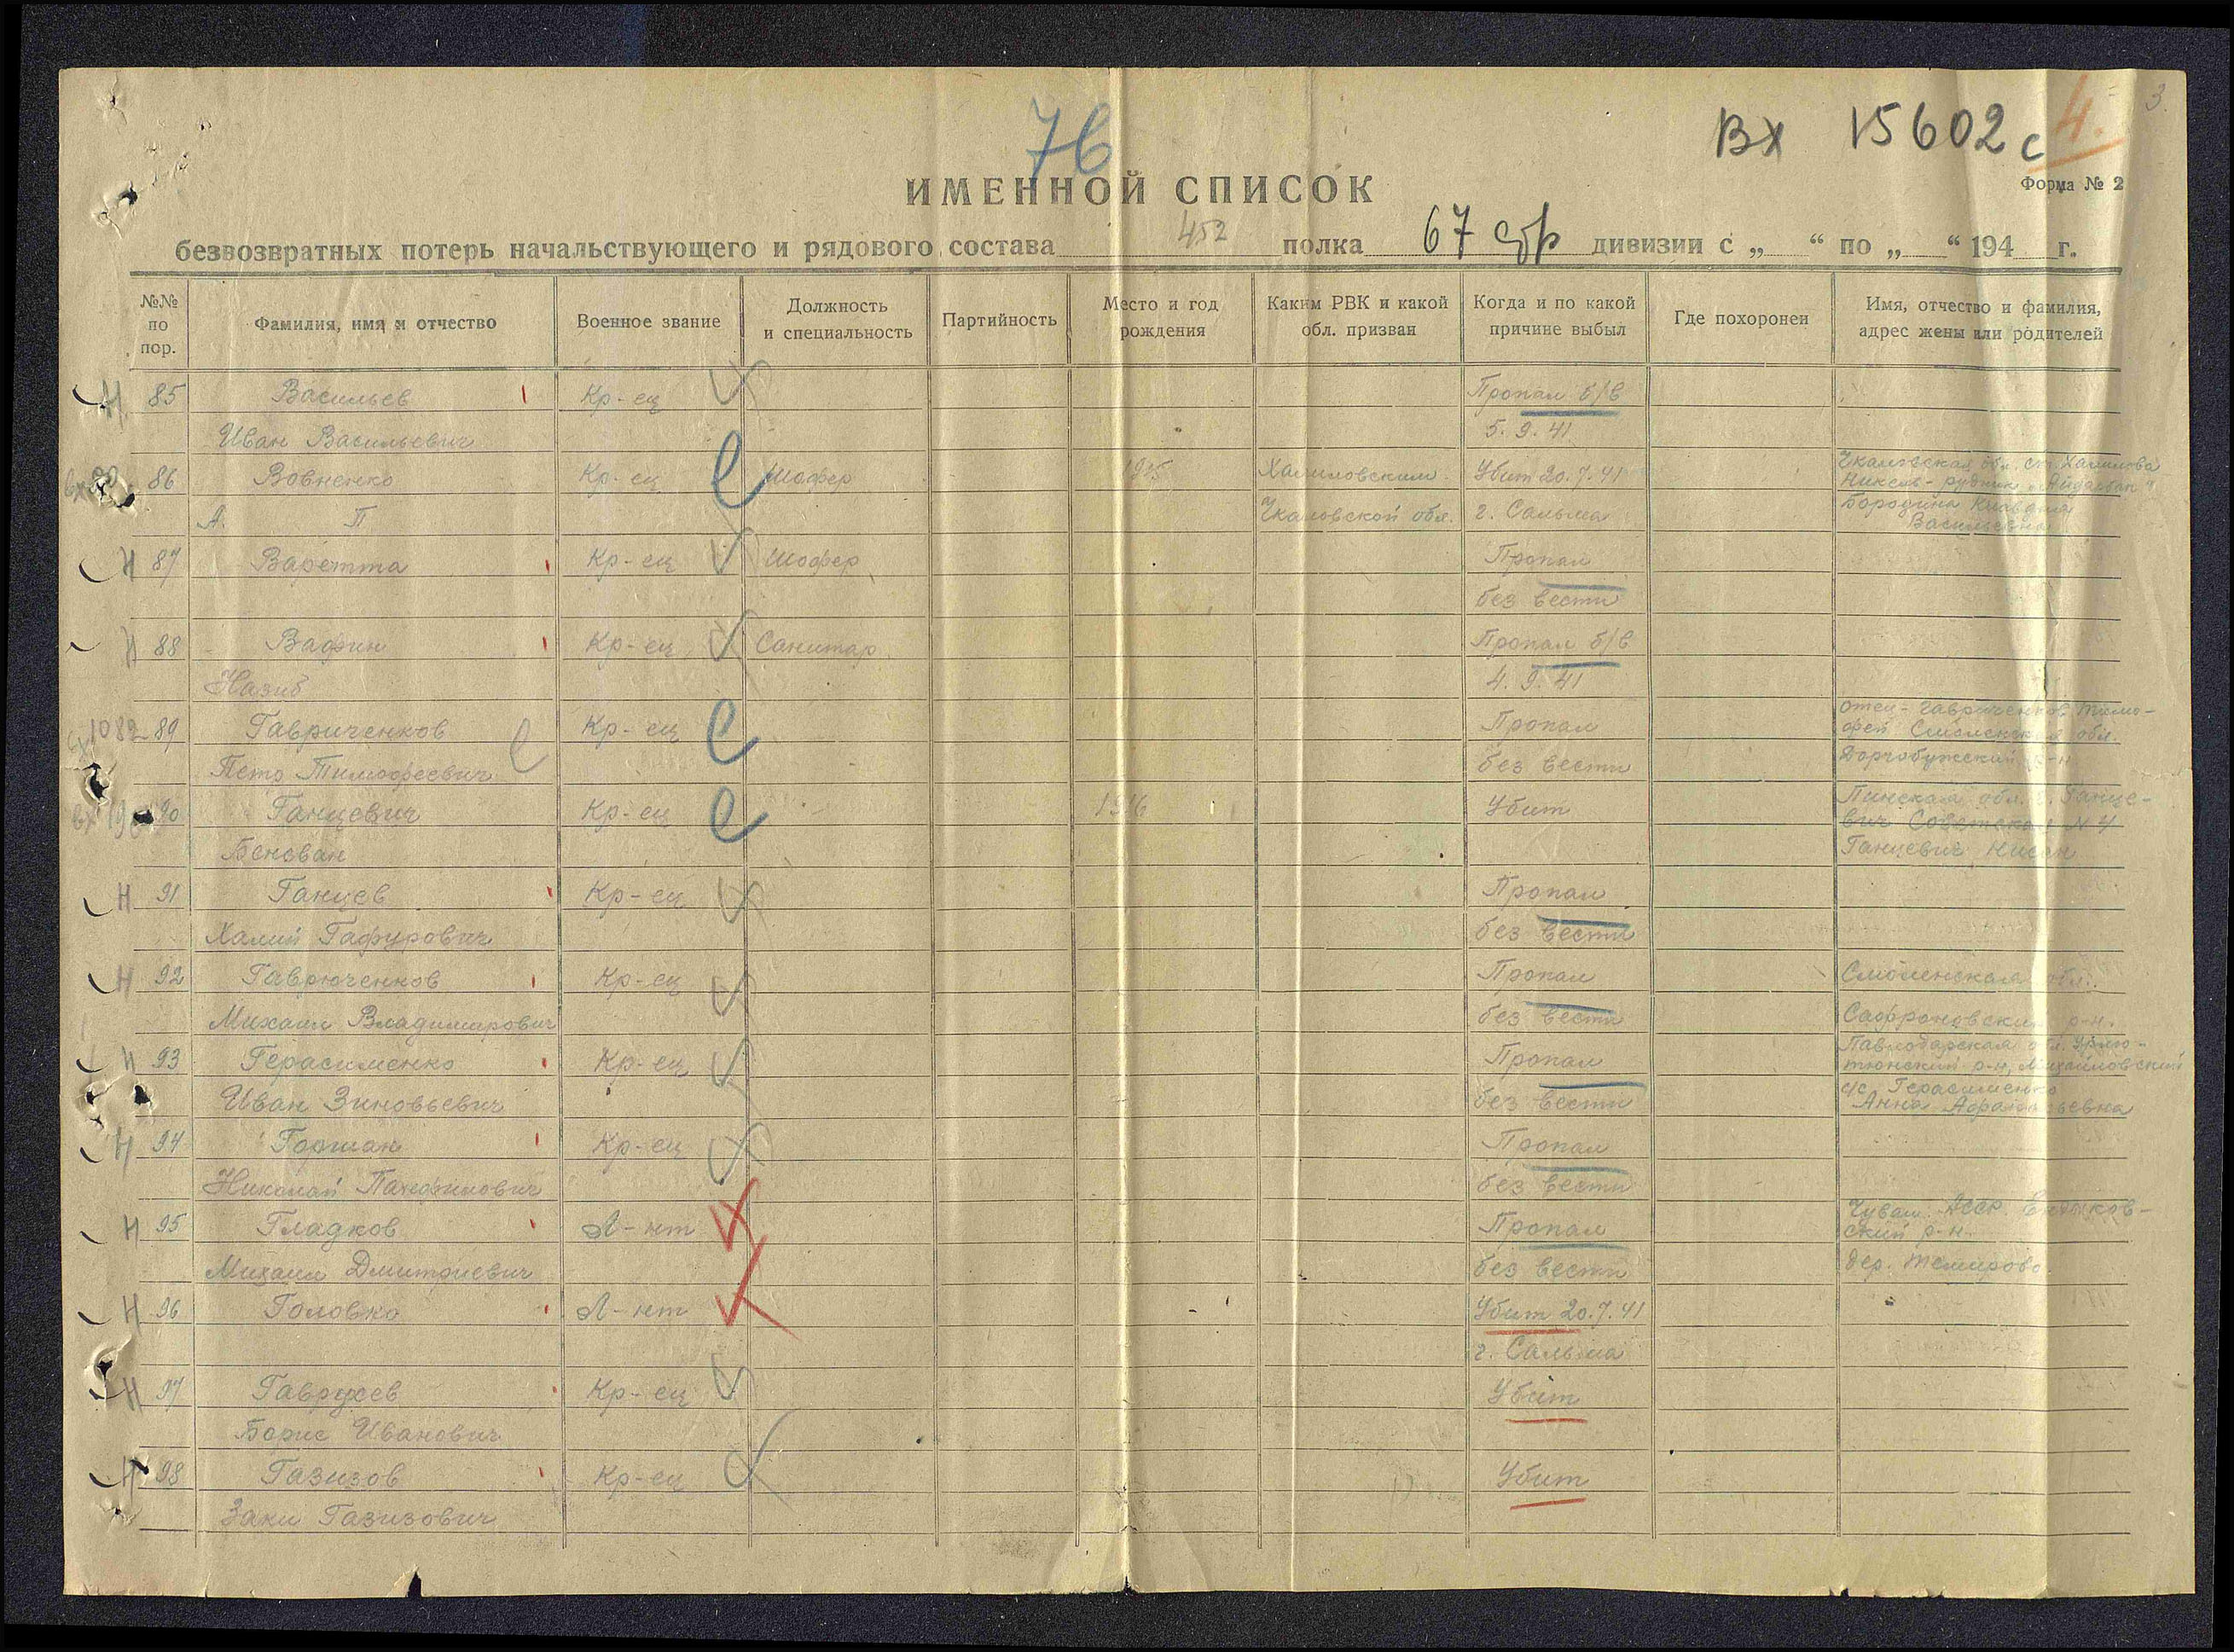 3.
4.
76
Вх 15602 с
ИМЕННОЙ СПИСОК
Форма № 2
безвозвратных потерь начальствующего и рядового состава 452 полка 67 дивизии с „ “ по „ “ 194 г.
№№ по пор. Фамилия, имя и отчество Военное звание Должность и специальность Партийность Место и год рождения Каким РВК и какой обл. призван Когда и по какой причине выбыл Где похоронен Имя, отчество и фамилия, адрес жены или родителей
Н 85 Васильев Кр-ец Пропал б/в
Иван Васильевич 5.9.41
86 Вовненко Кр-ец Шофер Халиловским Убит 20.7.41 Чкаловская обл. ст. Халилова
Никель-рудник
А. П Чкаловской обл. г. Сальма Бородина Клавдия
Васильевна
Н 87 Варетта Кр-ец Шофер Пропал
без вести
Н 88 Вафин Кр-ец Санитар Пропал б/в
Назиб 4.9.41
1082 89 Гавриченков Кр-ец Пропал отец-Гавриченков Тимо-
фей Смоленская обл.
Петр Тимофеевич без вести Дорогобужский р-н
90 Ганцевич Кр-ец 1916 Убит Пинская обл. г. Ганце-
вич Советская N 4
Бенсван Ганцевич Нисан
Н 91 Ганцев Кр-ец Пропал
Халий Гафурович без вести
Н 92 Гаврюченков Кр-ец Пропал Смоленская обл.
Михаил Владимирович без вести Сафроновский р-н.
Н 93 Герасименко Кр-ец Пропал Павлодарская обл. Урлю-
тюпский р-н, Михайловский
Иван Зиновьевич без вести с/с, Герасименко
Анна Афанасьевна
Н 94 Горшан Кр-ец Пропал
Николай Панфилович без вести
Н 95 Гладков Л-нт Пропал Чуваш. АССР.
ский р-н.
Михаил Дмитриевич без вести дер. Темирово.
Н 96 Головко Л-нт Убит 20.7.41
г. Сальма
Н 97 Гаврусев Кр-ец Убит
Борис Иванович
Н 98 Газизов Кр-ец Убит
Заки Газизович